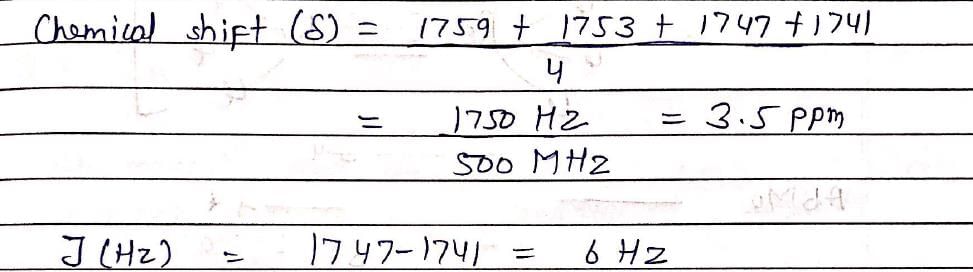 Chemical shift (δ) = 1759 + 1753 + 1747 + 1741
4
= 1750 Hz = 3.5 ppm
500 MHz
J (Hz) = 1747-1741 = 6 Hz